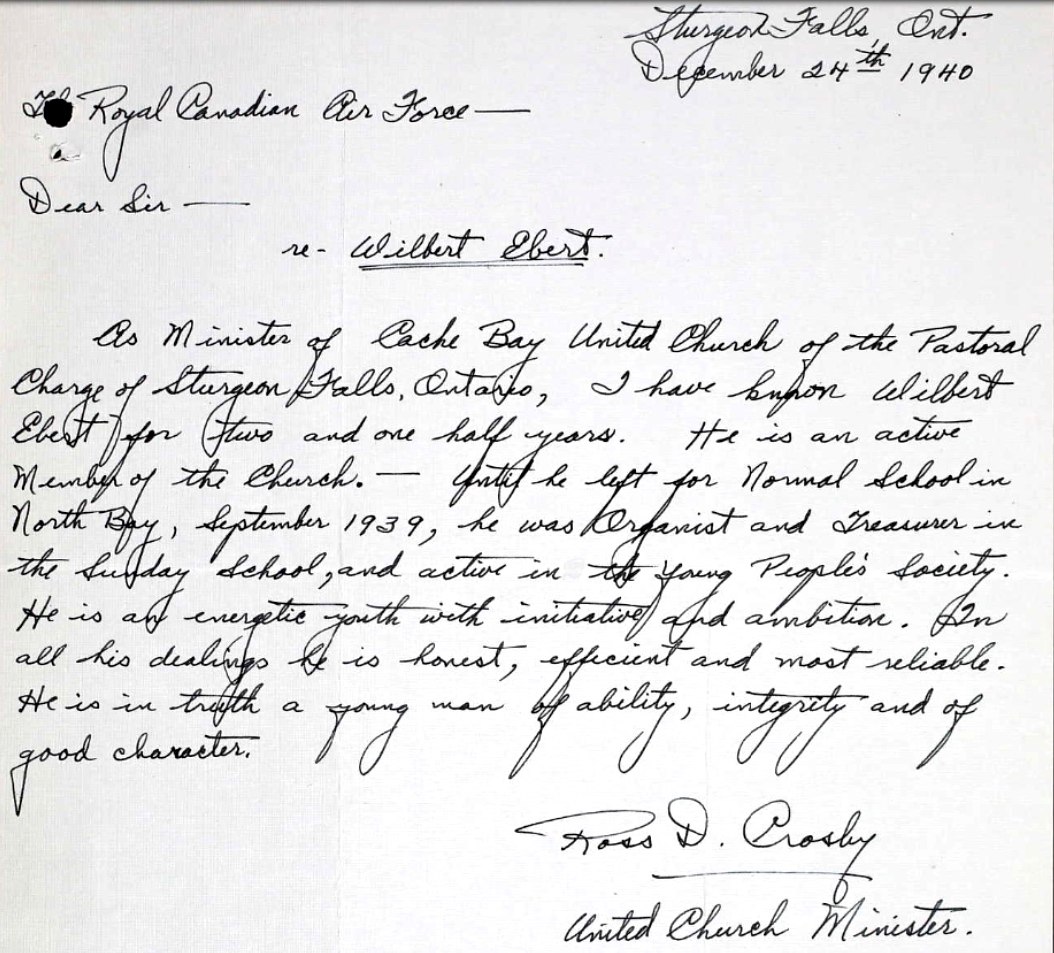 Sturgeon Falls, Ont.
December 24th 1940
To Royal Canadian Air Force —
Dear Sir —
re- Wilbert Ebert.
As Minister of Cache Bay United Church of the Pastoral
Charge of Sturgeon Falls, Ontario, I have known Wilbert
Ebert for two and one half years. He is an active
Member of the Church. — Until he left for Normal School in
North Bay, September 1939, he was Organist and Treasurer in
the Sunday School, and active in the Young People's Society.
He is an energetic youth with initiative and ambition. In
all his dealings he is honest, efficient and most reliable.
He is in truth a young man of ability, integrity and of
good character.
Ross D. Crosby
United Church Minister.